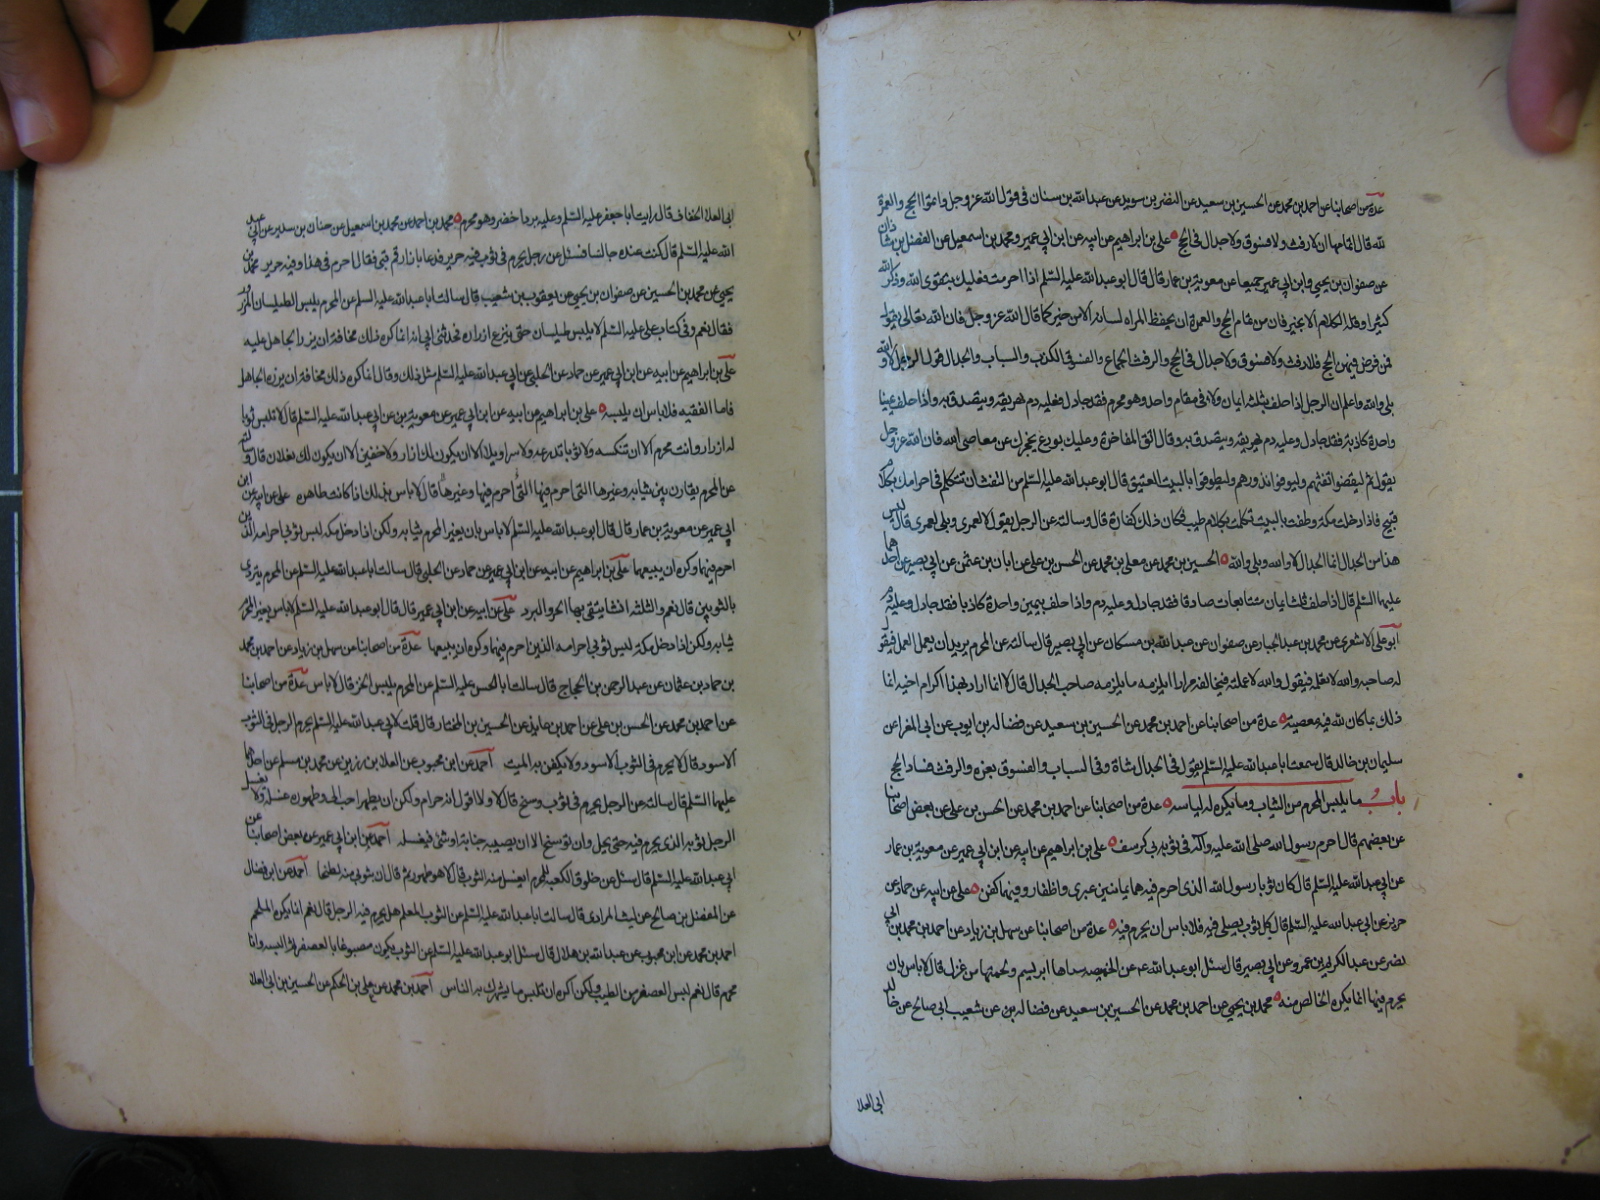 عدة من اصحابنا عن احمد بن محمد عن الحسين بن سعيد عن النضر بن سويد عن عبدالله بن سنان فى قول الله عز وجل واتموا الحج والعمرة
لله قال اتمامها ان لا رفث ولا فسوق ولا جدال فى الحج علي بن ابراهيم عن ابيه عن ابن ابي عمير ومحمد بن اسمعيل عن الفضل بن شاذان
عن صفوان بن يحيى وابن ابي عمير جميعا عن معوية بن عمار قال قال ابو عبدالله عليه السلم اذا احرمت فعليك بتقوى الله وذكر الله
كثيرا وقلة الكلام الا بخير فان من تمام الحج والعمرة ان يحفظ المراه لسانه الا من خير كما قال الله عز وجل فان الله تعالى يقول
فمن فرض فيهن الحج فلا رفث ولا فسوق ولا جدال فى الحج والرفث الجماع والفسوق الكذب والسباب والجدال قول الرجل لا والله
بلى والله واعلم ان الرجل اذا حلف بثلثه ايمان ولاء فى مقام واحد وهو محرم فقد جادل فعليه دم يهريقه ويتصدق به واذا حلف يمينا
واحدة كاذبة فقد جادل وعليه دم يهريقه ويتصدق به وقال اتق المفاخرة وعليك بورع يحجزك عن معاصي الله فان الله عز وجل
يقول ثم ليقضوا تفثهم وليوفوا نذورهم وليطوفوا بالبيت العتيق قال ابو عبدالله عليه السلم من التفث ان تتكلم فى احرامك بكلام
قبيح فاذا دخلت مكة وطفت بالبيت تكلمت بكلام طيب فكان ذلك كفارة قال وسالته عن الرجل يقول لا لعمرى وبلى لعمرى قال ليس
هذا من الجدال انما الجدال لا والله وبلى والله الحسين بن محمد عن معلى بن محمد عن الحسن بن على عن ابان بن عثمن عن ابي بصير عن احدهما
عليهما السلم قال اذا حلف ثلث ايمان متتابعات صادقا فقد جادل وعليه دم واذا حلف بيمين واحدة كاذبا فقد جادل وعليه دم
ابو على الاشعرى عن محمد بن عبدالجبار عن صفوان عن عبدالله بن مسكان عن ابي بصير قال سالته عن المحرم يريد ان يعمل العمل فيقول
له صاحبه والله لا تعمله فيقول والله لاعملنه فيخالفه مرارا ايلزمه ما يلزمه صاحب الجدال قال لا انما اراد بهذا اكرام اخيه انما
ذلك ما كان لله فيه معصية عدة من اصحابنا عن احمد بن محمد عن الحسين بن سعيد عن فضاله بن ايوب عن ابي المغرا عن
سليمان بن خالد قال سمعت ابا عبدالله عليه السلم يقول فى الجدال شاة وفى السباب والفسوق بقرة والرفث فساد الحج
باب ما يلبس المحرم من الثياب وما يكره له لباسه عدة من اصحابنا عن احمد بن محمد عن الحسن بن على عن بعض اصحابنا
عن بعضهم قال احرم رسول الله صلى الله عليه وآله فى ثوبى كرسف على بن ابراهيم عن ابيه عن ابن ابي عمير عن معوية بن عمار
عن ابي عبدالله عليه السلم قال كان ثوبا رسول الله الذى احرم فيهما يمانيين عبرى واظفار وفيهما كفن على عن ابيه عن حماد عن
حريز عن ابي عبدالله عليه السلم قال كل ثوب يصلى فيه فلا باس ان يحرم فيه عدة من اصحابنا عن سهل بن زياد عن احمد بن محمد بن ابي
نصر عن عبدالكريم بن عمرو عن ابي بصير قال سئل ابو عبدالله ع عن الخميصه سداها ابريسم ولحمتها من غزل قال لا باس بان
يحرم فيها انما يكره الخالص منه محمد بن يحيى عن احمد بن محمد عن الحسين بن سعيد عن فضاله بن عن شعيب ابي صالح عن خالد
ابى العلا
ابى العلا الخفاف قال رايت ابا جعفر عليه السلم وعليه برد اخضر وهو محرم محمد بن احمد عن محمد بن اسمعيل عن حنان بن سدير عن ابي عبد
الله عليه السلم قال كنت عنده جالسا فسئل عن رجل يحرم فى ثوب فيه حرير فدعا بازار قرقبى فقال احرم فى هذا وفيه حرير محمد بن
يحيى عن محمد بن الحسين عن صفوان بن يحيى عن يعقوب بن شعيب قال سالت ابا عبدالله عليه السلم عن المحرم يلبس الطيلسان المزرر
فقال نعم وفى كتاب على عليه السلم لا يلبس طيلسان حتى ينزع ازراره فحدثنى ابي انه انما كره ذلك مخافة ان يزره الجاهل عليه
على بن ابراهيم عن ابيه عن ابن ابي عمير عن حماد عن الحلبى عن ابي عبدالله عليه السلم مثل ذلك وقال انما كره ذلك مخافة ان يزره الجاهل
فاما الفقيه فلا باس ان يلبسه على بن ابراهيم عن ابيه عن ابن ابي عمير عن معوية بن عن ابي عبدالله عليه السلم قال لا تلبس ثوبا
له ازرار وانت محرم الا ان تنكسه ولا ثوبا تدرعه ولا سراويلا الا ان يكون لك ازار ولا خفين الا ان يكون لك نعلان قال وسالته
عن المحرم يقارن بين ثيابه وغيرها التى احرم فيها التى احرم فيها وغيرها قال لا باس بذلك اذا كانت طاهره على عن ابيه عن ابن
ابي عمير عن معوية بن عمار قال قال ابو عبدالله عليه السلم لا باس بان يغير المحرم ثيابه ولكن اذا دخل مكة لبس ثوبي احرامه الذين
احرم فيهما وكره ان يبيعهما على بن ابراهيم عن ابيه عن ابن ابي عمير عن حماد عن الحلبى قال سالت ابا عبدالله عليه السلم عن المحرم يتردى
بالثوبين قال نعم والثلثه ان شا يتقى بها الحر والبرد على عن ابيه عن ابن ابي عمير قال قال ابو عبدالله عليه السلم لا باس يغير المحرم
ثيابه ولكن اذا دخل مكة لبس ثوبي احرامه الذين احرم فيهما وكره ان يبيعهما عدة من اصحابنا عن سهل بن زياد عن احمد بن محمد
بن حماد بن عثمان عن عبدالرحمن بن الحجاج قال سالت ابا الحسن عليه السلم عن المحرم يلبس الخز قال لا باس عدة من اصحابنا
عن احمد بن محمد عن الحسن بن على عن احمد بن عايذ عن الحسين بن المختار قال قلت لابي عبدالله عليه السلم يحرم الرجل فى الثوب
الاسود قال لا يحرم فى الثوب الاسود ولا يكفن به الميت احمد عن ابن محبوب عن العلا بن رزين عن محمد بن مسلم عن احدهما
عليهما السلم قال سالته عن الرجل يحرم فى ثوب وسخ قال لا ولا اقول انه حرام ولكن ان يطهر احب الى وطهوره غسله ولا يغسل
الرجل ثوبه الذى يحرم فيه حتى يحل وان توسخ الا ان يصيبه جنابة او شئ فيغسله احمد عن ابن ابي عمير عن بعض اصحابنا عن
ابي عبدالله عليه السلم قال سئل عن خلوق الكعبه للمحرم ايغسل منه الثوب قال لا هو طهور ثم قال ان بثوبى منه لطخا احمد عن ابن فضال
عن المفضل بن صالح عن ليث المرادى قال سالت ابا عبدالله عليه السلم عن الثوب المعلم هل يحرم فيه الرجل قال نعم انما يكره الملحم
احمد بن محمد عن ابن محبوب عن عبدالله بن هلال قال سئل ابو عبدالله عليه السلم عن الثوب يكون مصبوغا بالعصفر ثم البسه وانا
محرم قال نعم ليس العصفر من الطيب ولكن اكره ان تلبس ما يشهرك به الناس احمد بن محمد عن على بن الحكم عن الحسين بن ابي العلا